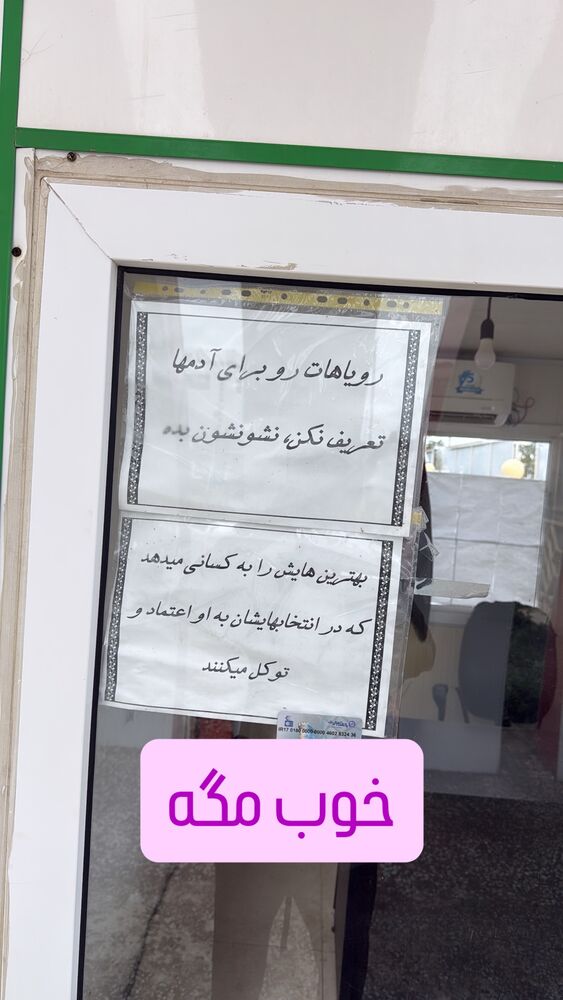 رویاهات رو برای آدمها
تعریف نکن، نشونشون بده
بهترین هایش را به کسانی میدهد
که در انتخابهایشان به او اعتماد و
توکل میکنند
خوب مگه